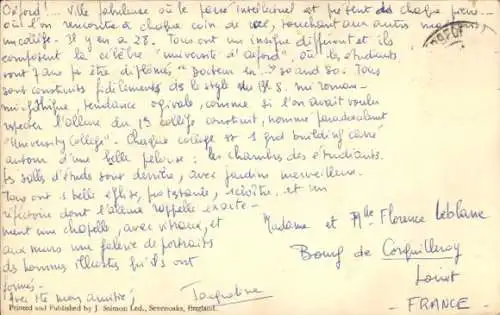 Oxford! Ville fabuleuse où le passé intellectuel est présent à chaque pierre
où l'on rencontre à chaque coin de rue, touchant aux autres maisons,
un collège. Il y en a 28. Tous ont un insigne différent et ils
composent la célèbre "université d'Oxford", où les étudiants
sont 7 ans pr être diplômés "Doctor en ... so and so. Tous
sont construits fidèlement ds le style du 13e S. mi-roman-
mi-gothique, tendance ogivale, comme si l'on avait voulu
respecter l'allure du 1er collège construit, nommé paradoxalement
"University College". Chaque collège est 1 grd building carré
autour d'une belle pelouse: les chambres des étudiants.
les salles d'étude sont derrière, avec jardins merveilleux.
Tous ont 1 belle église, protestante, et un
réfectoire dont l'allure rappelle exacte-
ment une chapelle, avec vitraux, et
aux murs une galerie de portraits
de hommes illustres qu'ils ont
formés.
Avec tte mon amitié,
Jacqueline
Madame et Mlle Florence Leblanc
Bourg de Corquilleroy
Loiret
- FRANCE -
Printed and Published by J. Salmon Ltd., Sevenoaks, England.